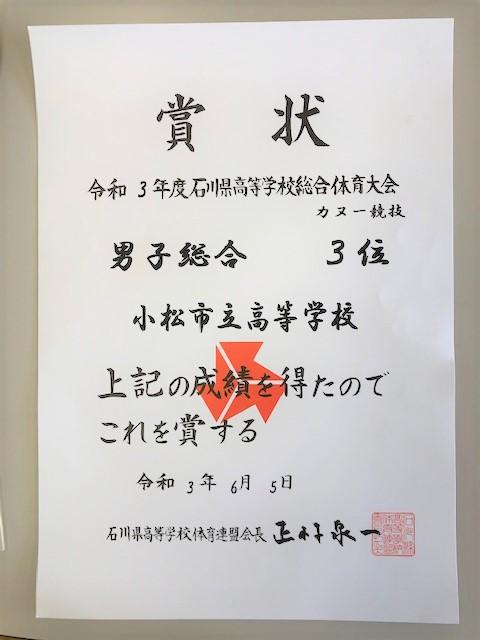 賞状
令和3年度石川県高等学校総合体育大会
カヌー競技
男子総合 3位
小松市立高等学校
上記の成績を得たので
これを賞する
令和3年6月5日
石川県高等学校体育連盟会長